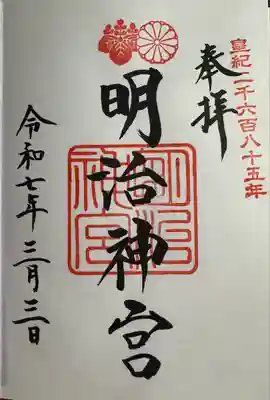 皇紀二千六百八十五年
奉拝
明治神宮
令和七年三月三日